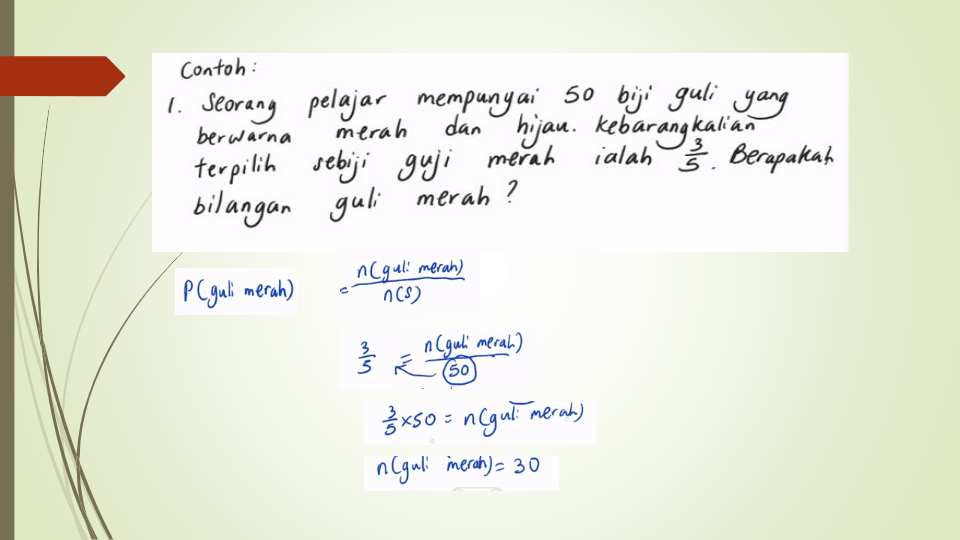 Contoh:
1. Seorang pelajar mempunyai 50 biji guli yang
berwarna merah dan hijau. kebarangkalian
terpilih sebiji guji merah ialah 3/5. Berapakah
bilangan guli merah?
P(guli merah) = n(guli merah)/n(S)
3/5 = n(guli merah)/50
3/5 × 50 = n(guli merah)
n(guli merah) = 30